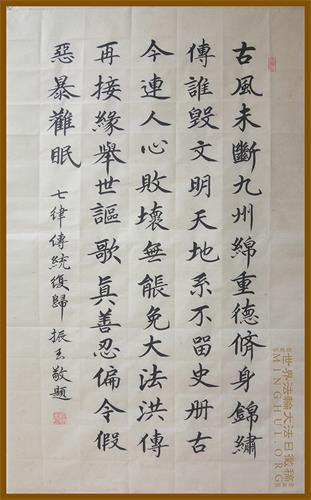 古風未斷九州綿重德脩身錦繡
傳誰毀文明天地系不留史册古
今連人心敗壞無能免大法洪傳
再接緣舉世謳歌真善忍偏令假
惡暴難眠
七律傳統復歸 振玄敬題
世界法輪大法日徵稿
MINGHUI.ORG